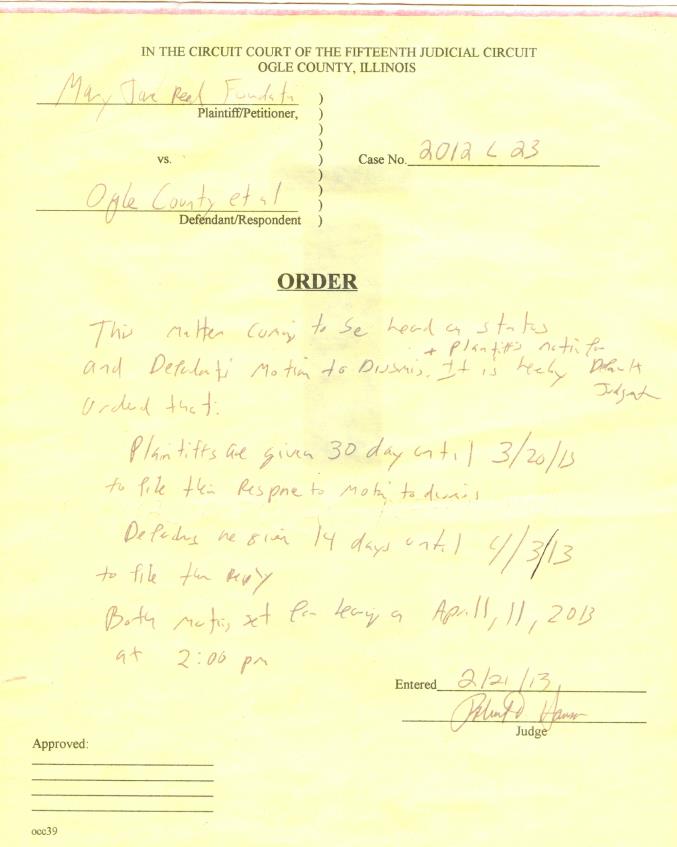 IN THE CIRCUIT COURT OF THE FIFTEENTH JUDICIAL CIRCUIT
OGLE COUNTY, ILLINOIS
Mary Jane Reed Foundati
Plaintiff/Petitioner,
)
)
)
)
)
)
)
)
)
vs.
Case No. 2012 L 23
Ogle County et al
Defendant/Respondent
ORDER
This matter coming to be heard on status
+ Plaintiff's motion for
and Defendants Motion to Dismiss. It is hereby Default
Judgment
Ordered that:
Plaintiffs are given 30 day until 3/20/13
to file their Response to Motion to dismiss
Defendants are given 14 days until 4/3/13
to file their Reply
Both motions set for hearing on April 11, 2013
at 2:00 pm
Entered 2/21/13
Hanson
Judge
Approved:
occ39